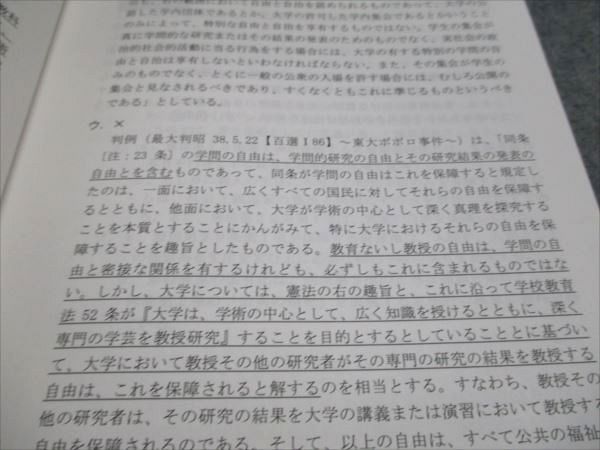 した学内団体であるとか、大学の許可した学内集会であるとかいうこと
のみによって、特別な自由と自治を享有するものではない。学生の集会が
真に学問的な研究またはその結果の発表のためのものでなく、実社会の政
治的社会的活動に当る行為をする場合には、大学の有する特別の学問の自
由と自治は享有しないといわなければならない。また、その集会が学生の
みのものでなく、とくに一般の公衆の入場を許す場合には、むしろ公開の
集会と見なされるべきであり、すくなくともこれに準じるものというべき
である」としている。
ウ. ×
判例（最大判昭 38.5.22【百選Ⅰ86】～東大ポポロ事件～）は、「同条
〔注：23 条〕の学問の自由は、学問的研究の自由とその研究結果の発表の
自由とを含むものであって、同条が学問の自由はこれを保障すると規定し
たのは、一面において、広くすべての国民に対してそれらの自由を保障す
るとともに、他面において、大学が学術の中心として深く真理を探究する
ことを本質とすることにかんがみて、特に大学におけるそれらの自由を保
障することを趣旨としたものである。教育ないし教授の自由は、学問の自
由と密接な関係を有するけれども、必ずしもこれに含まれるものではな
い。しかし、大学については、憲法の右の趣旨と、これに沿って学校教育
法 52 条が『大学は、学術の中心として、広く知識を授けるとともに、深く
専門の学芸を教授研究』することを目的とするとしていることとに基づい
て、大学において教授その他の研究者がその専門の研究の結果を教授する
自由は、これを保障されると解するのを相当とする。すなわち、教授その
他の研究者は、その研究の結果を大学の講義または演習において教授する
自由を保障されるのである。そして、以上の自由は、すべて公共の福祉